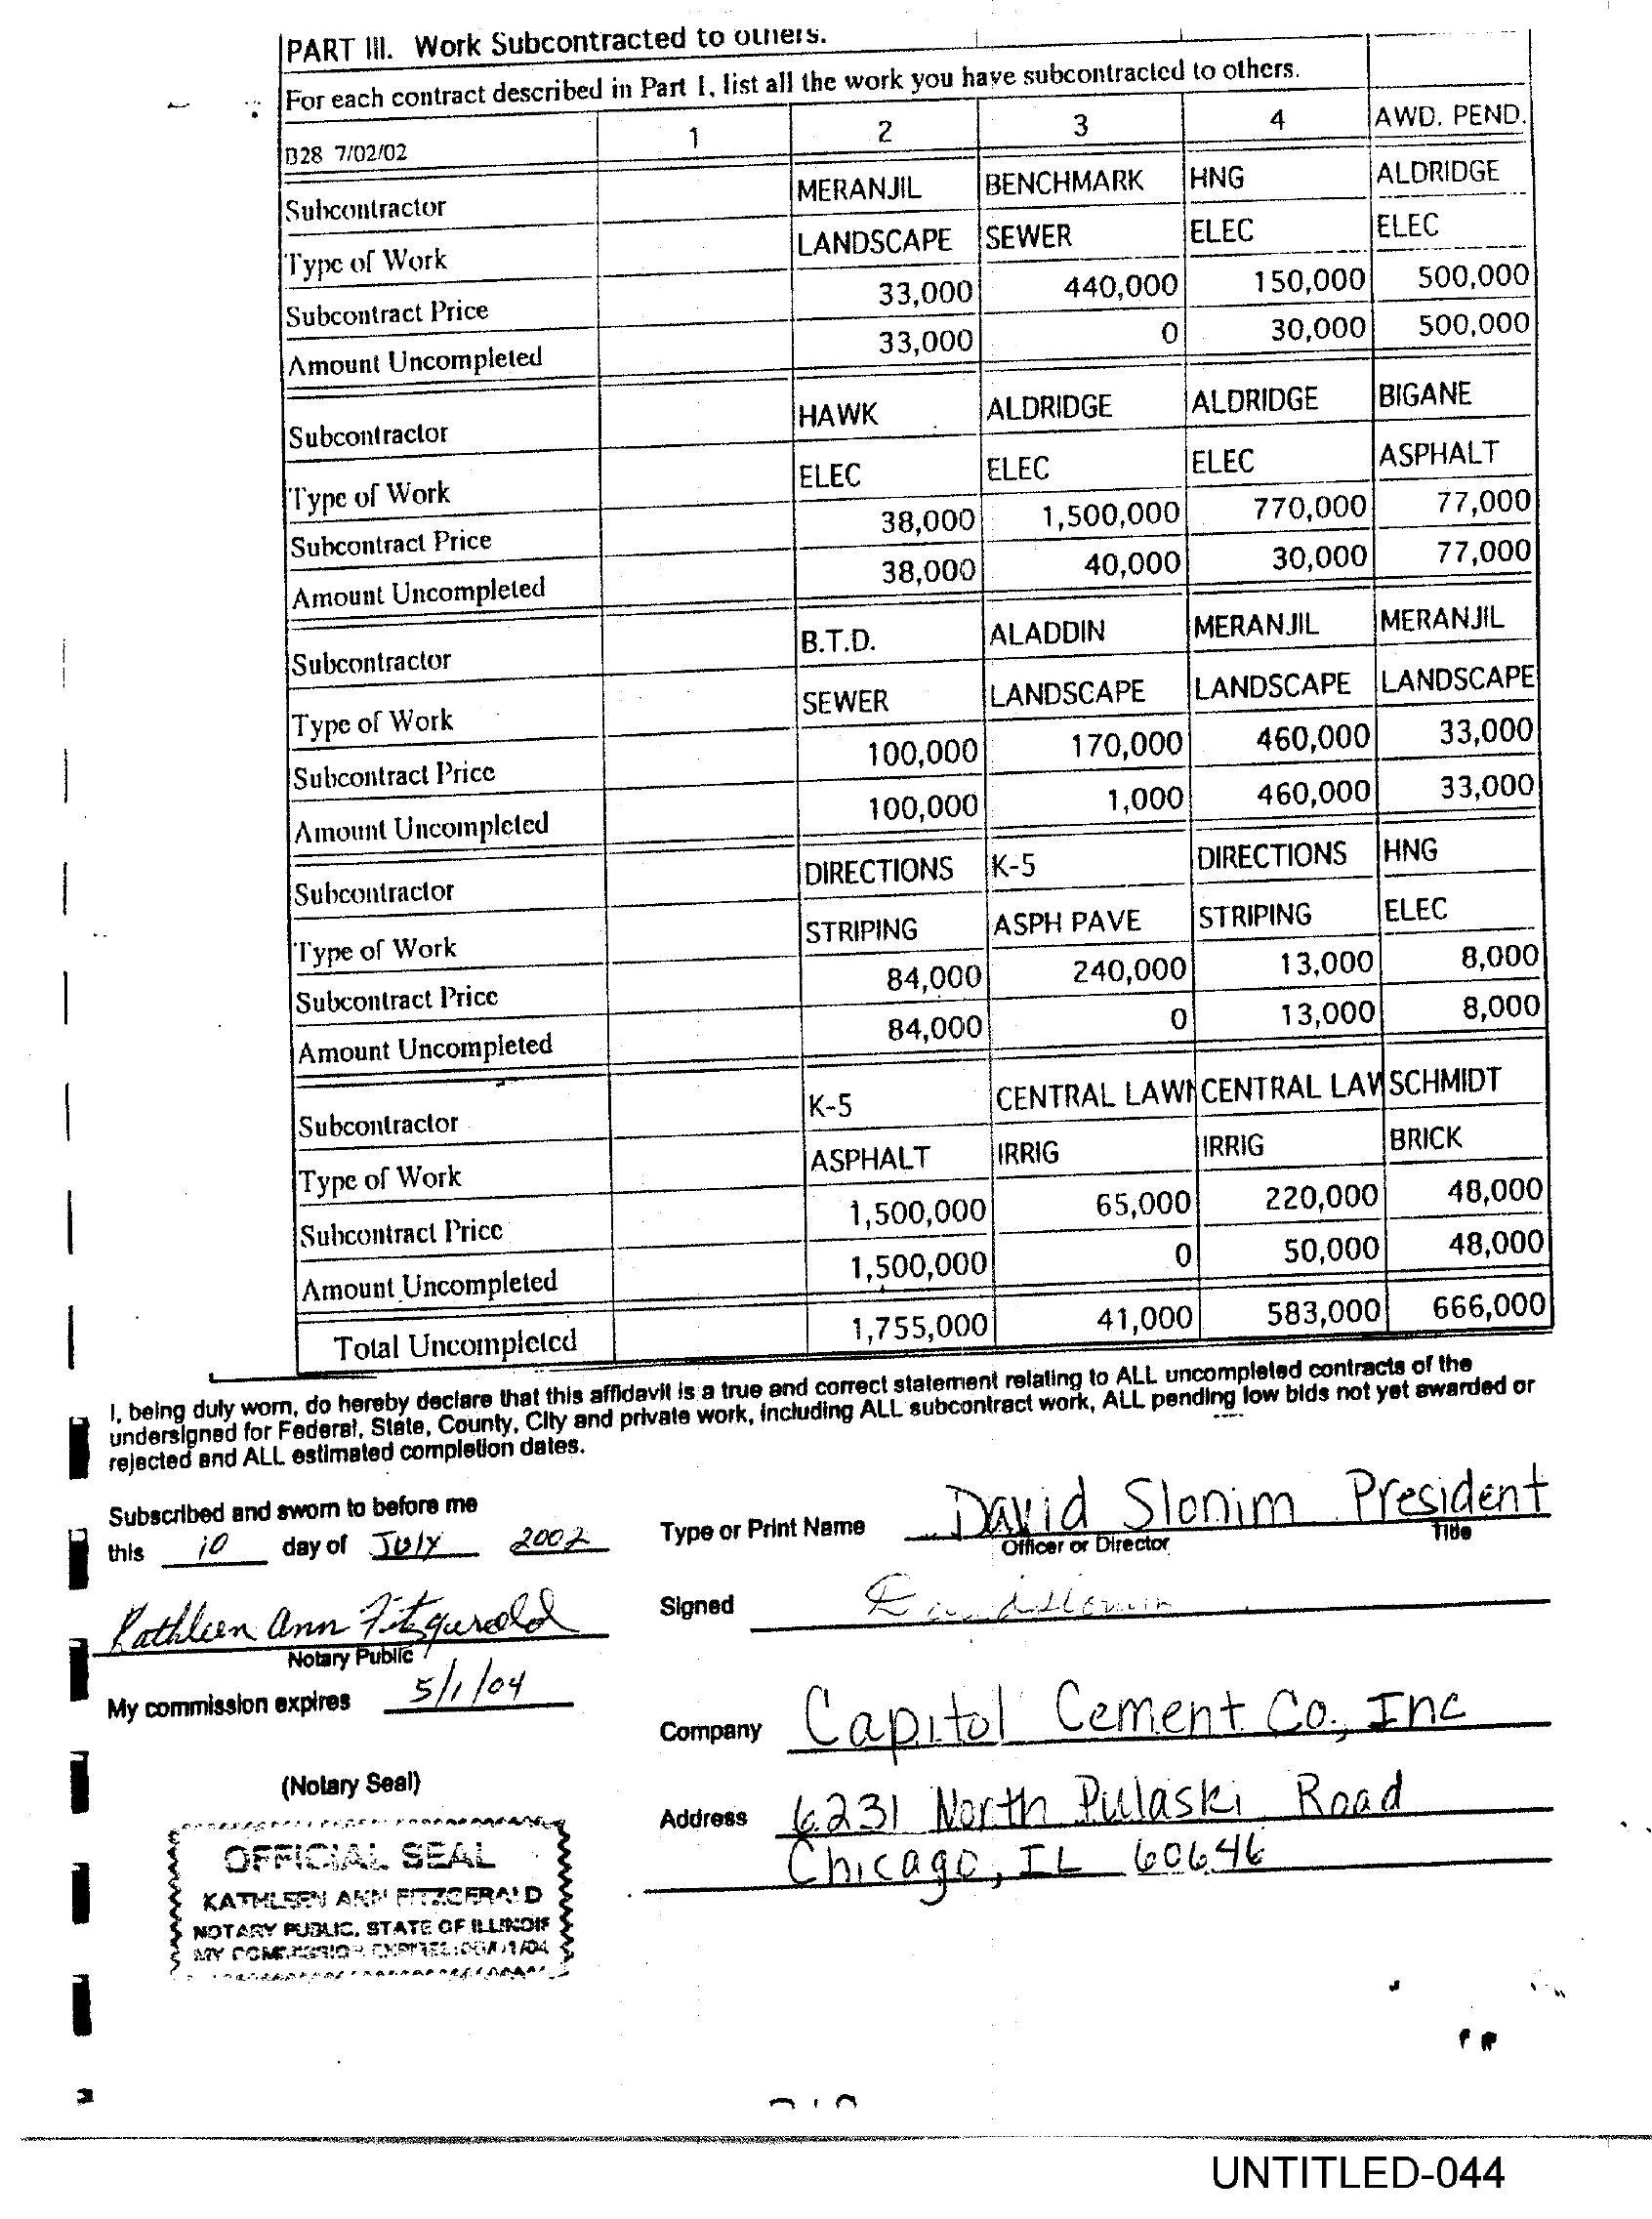 PART III. Work Subcontracted to others.
For each contract described in Part I, list all the work you have subcontracted to others.
B28 7/02/02 1 2 3 4 AWD. PEND.
Subcontractor MERANJIL BENCHMARK HNG ALDRIDGE
Type of Work LANDSCAPE SEWER ELEC ELEC
Subcontract Price 33,000 440,000 150,000 500,000
Amount Uncompleted 33,000 0 30,000 500,000
Subcontractor HAWK ALDRIDGE ALDRIDGE BIGANE
Type of Work ELEC ELEC ELEC ASPHALT
Subcontract Price 38,000 1,500,000 770,000 77,000
Amount Uncompleted 38,000 40,000 30,000 77,000
Subcontractor B.T.D. ALADDIN MERANJIL MERANJIL
Type of Work SEWER LANDSCAPE LANDSCAPE LANDSCAPE
Subcontract Price 100,000 170,000 460,000 33,000
Amount Uncompleted 100,000 1,000 460,000 33,000
Subcontractor DIRECTIONS K-5 DIRECTIONS HNG
Type of Work STRIPING ASPH PAVE STRIPING ELEC
Subcontract Price 84,000 240,000 13,000 8,000
Amount Uncompleted 84,000 0 13,000 8,000
Subcontractor K-5 CENTRAL LAWN CENTRAL LAW SCHMIDT
Type of Work ASPHALT IRRIG IRRIG BRICK
Subcontract Price 1,500,000 65,000 220,000 48,000
Amount Uncompleted 1,500,000 0 50,000 48,000
Total Uncompleted 1,755,000 41,000 583,000 666,000
I, being duly worn, do hereby declare that this affidavit is a true and correct statement relating to ALL uncompleted contracts of the
undersigned for Federal, State, County, City and private work, including ALL subcontract work, ALL pending low bids not yet awarded or
rejected and ALL estimated completion dates.
Subscribed and sworn to before me
this 10 day of JULY 2002
Type or Print Name David Slonim President
Officer or Director Title
Kathleen Ann Fitzgerald
Notary Public
Signed David Slonim
My commission expires 5/1/04
Company Capitol Cement Co., Inc
(Notary Seal)
Address 6231 North Pulaski Road
Chicago, IL 60646
OFFICIAL SEAL
KATHLEEN ANN FITZGERALD
NOTARY PUBLIC, STATE OF ILLINOIS
MY COMMISSION EXPIRES:
UNTITLED-044